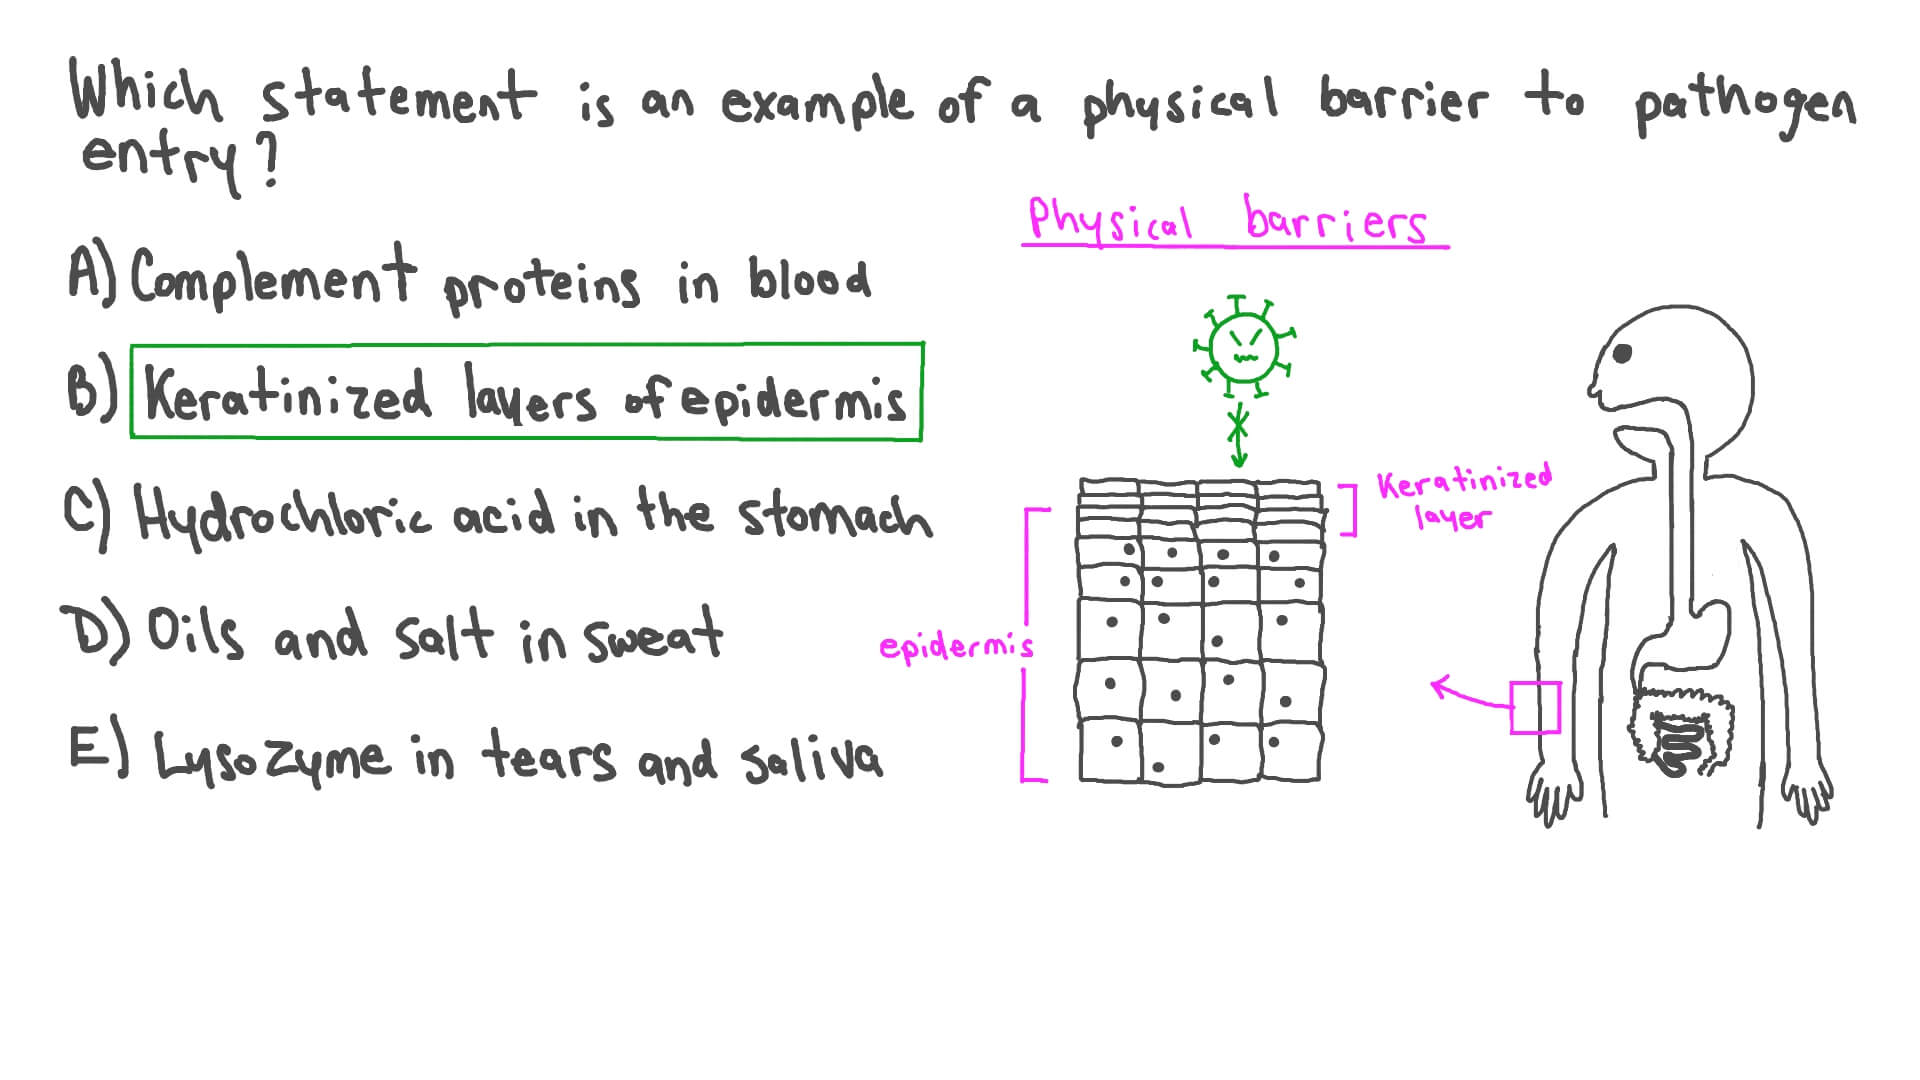 Which statement is an example of a physical barrier to pathogen
entry?
Physical barriers
A) Complement proteins in blood
B) Keratinized layers of epidermis
C) Hydrochloric acid in the stomach
D) Oils and salt in sweat
E) Lysozyme in tears and saliva
Keratinized
layer
epidermis